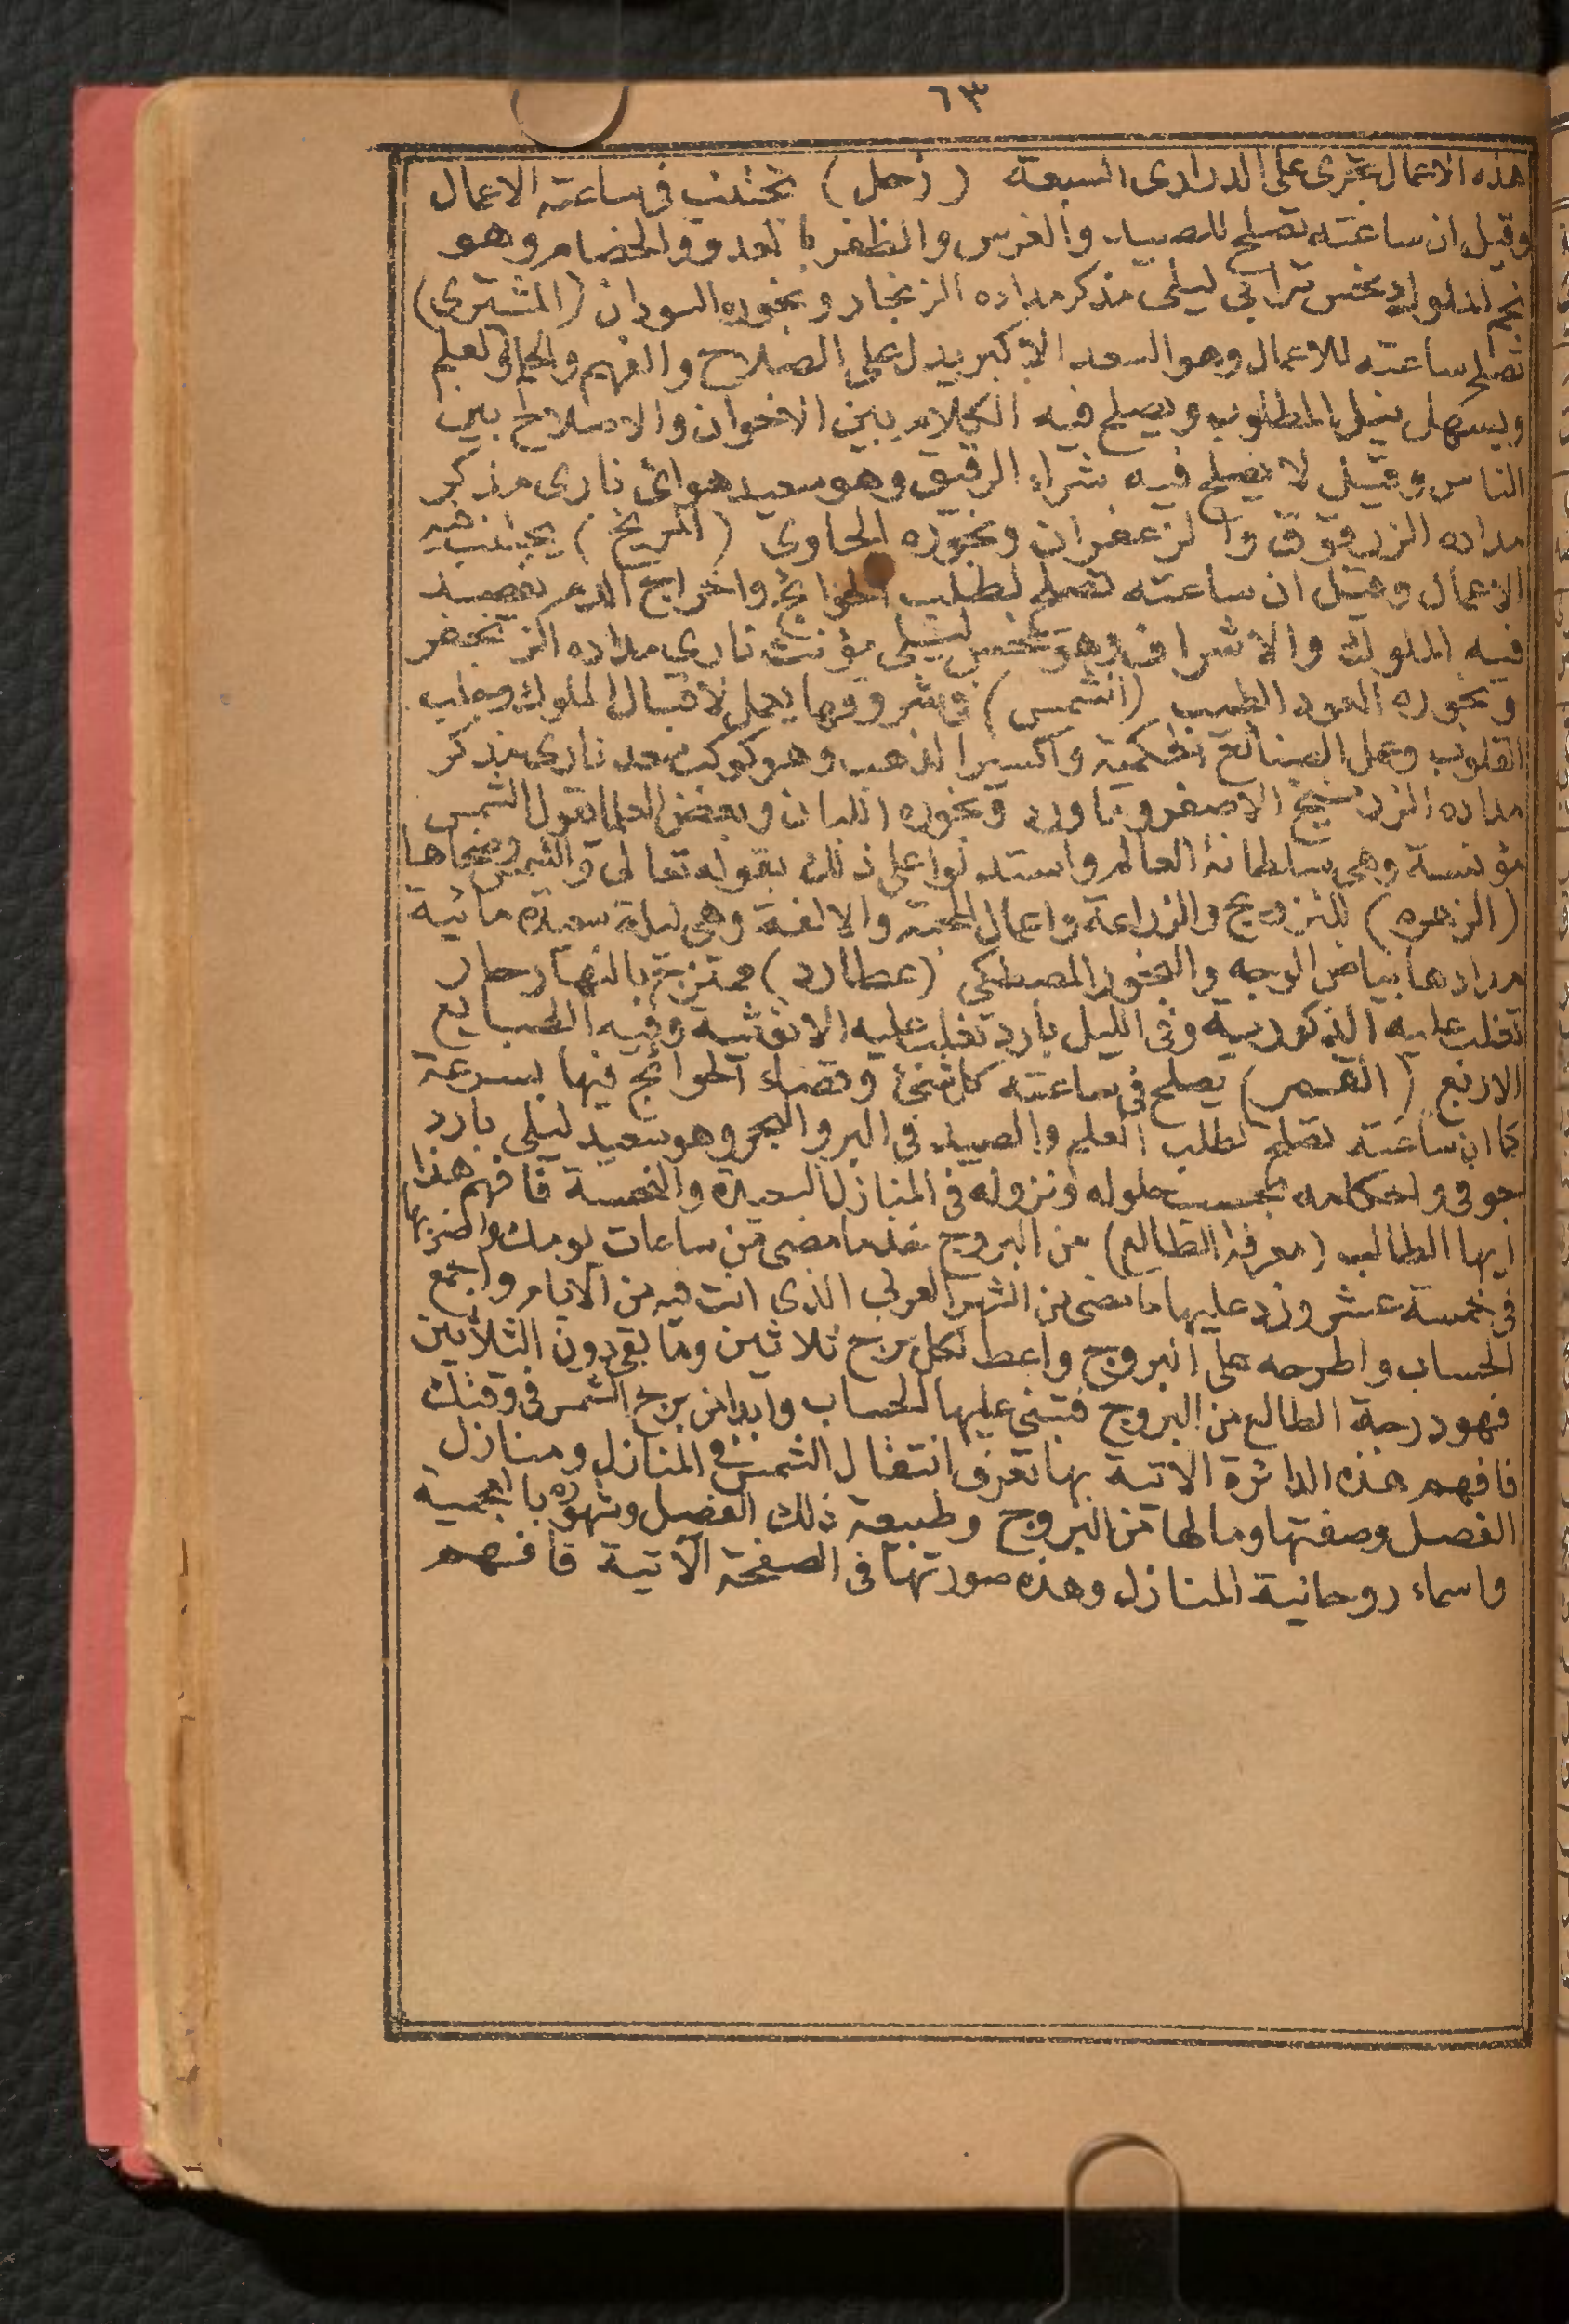 ٦٣
هذه الاعمال تجرى على الدرارى السبعة (زحل) تجتنب فى ساعته الاعمال
وقيل ان ساعته تصلح للصيد والغرس والظفر بالعدو والخصام وهو
نجم الملوك نحس ترابى ليلى مذكر مداده الزنجار وبخوره السودان (المشترى)
تصلح ساعته للاعمال وهو السعد الاكبر يدل على الصلاح والفهم والعلم
ويسهل نيل المطلوب ويصلح فيه الكلام بين الاخوان والاصلاح بين
الناس وقيل لا يصلح فيه شراء الرقيق وهو سعيد هوائى نارى مذكر
مداده الزرقون والزعفران وبخوره الجاوى (المريخ) يجتنب فيه
الاعمال وقيل ان ساعته تصلح لطلب الحوائج واخراج الدم تقصد
فيه الملوك والاشراف وهو نحس ليلى مؤنث نارى مداده الزنجفر
وبخوره العود الطيب (الشمس) فى شروقها يعمل لاقبال الملوك وجلب
القلوب وعمل الصنائع الحكمية واكسير الذهب وهو كوكب سعد نارى مذكر
مداده الزرنيخ الاصفر وماورد وبخوره اللبان وبعض العلما يقول الشمس
مؤنسة وهى سلطانة العالم واستدلوا على ذلك بقوله تعالى والشمس وضحاها
(الزهره) للتزويج والزراعة واعمال المحبة والالفة وهى ليلة سعيدة مائية
مدادها بياض الوجه والبخور المصطكى (عطارد) ممتزج بالنهار حار
تغلب عليه الذكورية وفى الليل بارد تغلب عليه الانوثية وفيه الطبايع
الاربع (القمر) يصلح فى ساعته كل شئ وقضاء الحوائج فيها بسرعة
كما ان ساعته تصلح لطلب العلم والصيد فى البر والبحر وهو سعيد ليلى بارد
جوفى واحكامه بحسب حلوله ونزوله فى المنازل السعيدة والنحسة فافهم هذا
ايها الطالب (معرفة الطالع) من البروج خذ ما مضى من ساعات يومك واضربها
فى خمسة عشر وزد عليها ما مضى من الشهر العربى الذى انت فيه من الايام واجمع
الحساب واطرحه على البروج واعط لكل برج ثلاثين وما بقى دون الثلاثين
فهو درجة الطالع من البروج فتبنى عليها الحساب وابدا من برج الشمس فى وقتك
فافهم هذه الدائرة الاتية بها تعرف انتقال الشمس فى المنازل ومنازل
الفصل وصفتها وما لها من البروج وطبيعة ذلك الفصل وشهوره بالعجمية
واسماء روحانية المنازل وهذه صورتها فى الصفحة الآتية فافهم